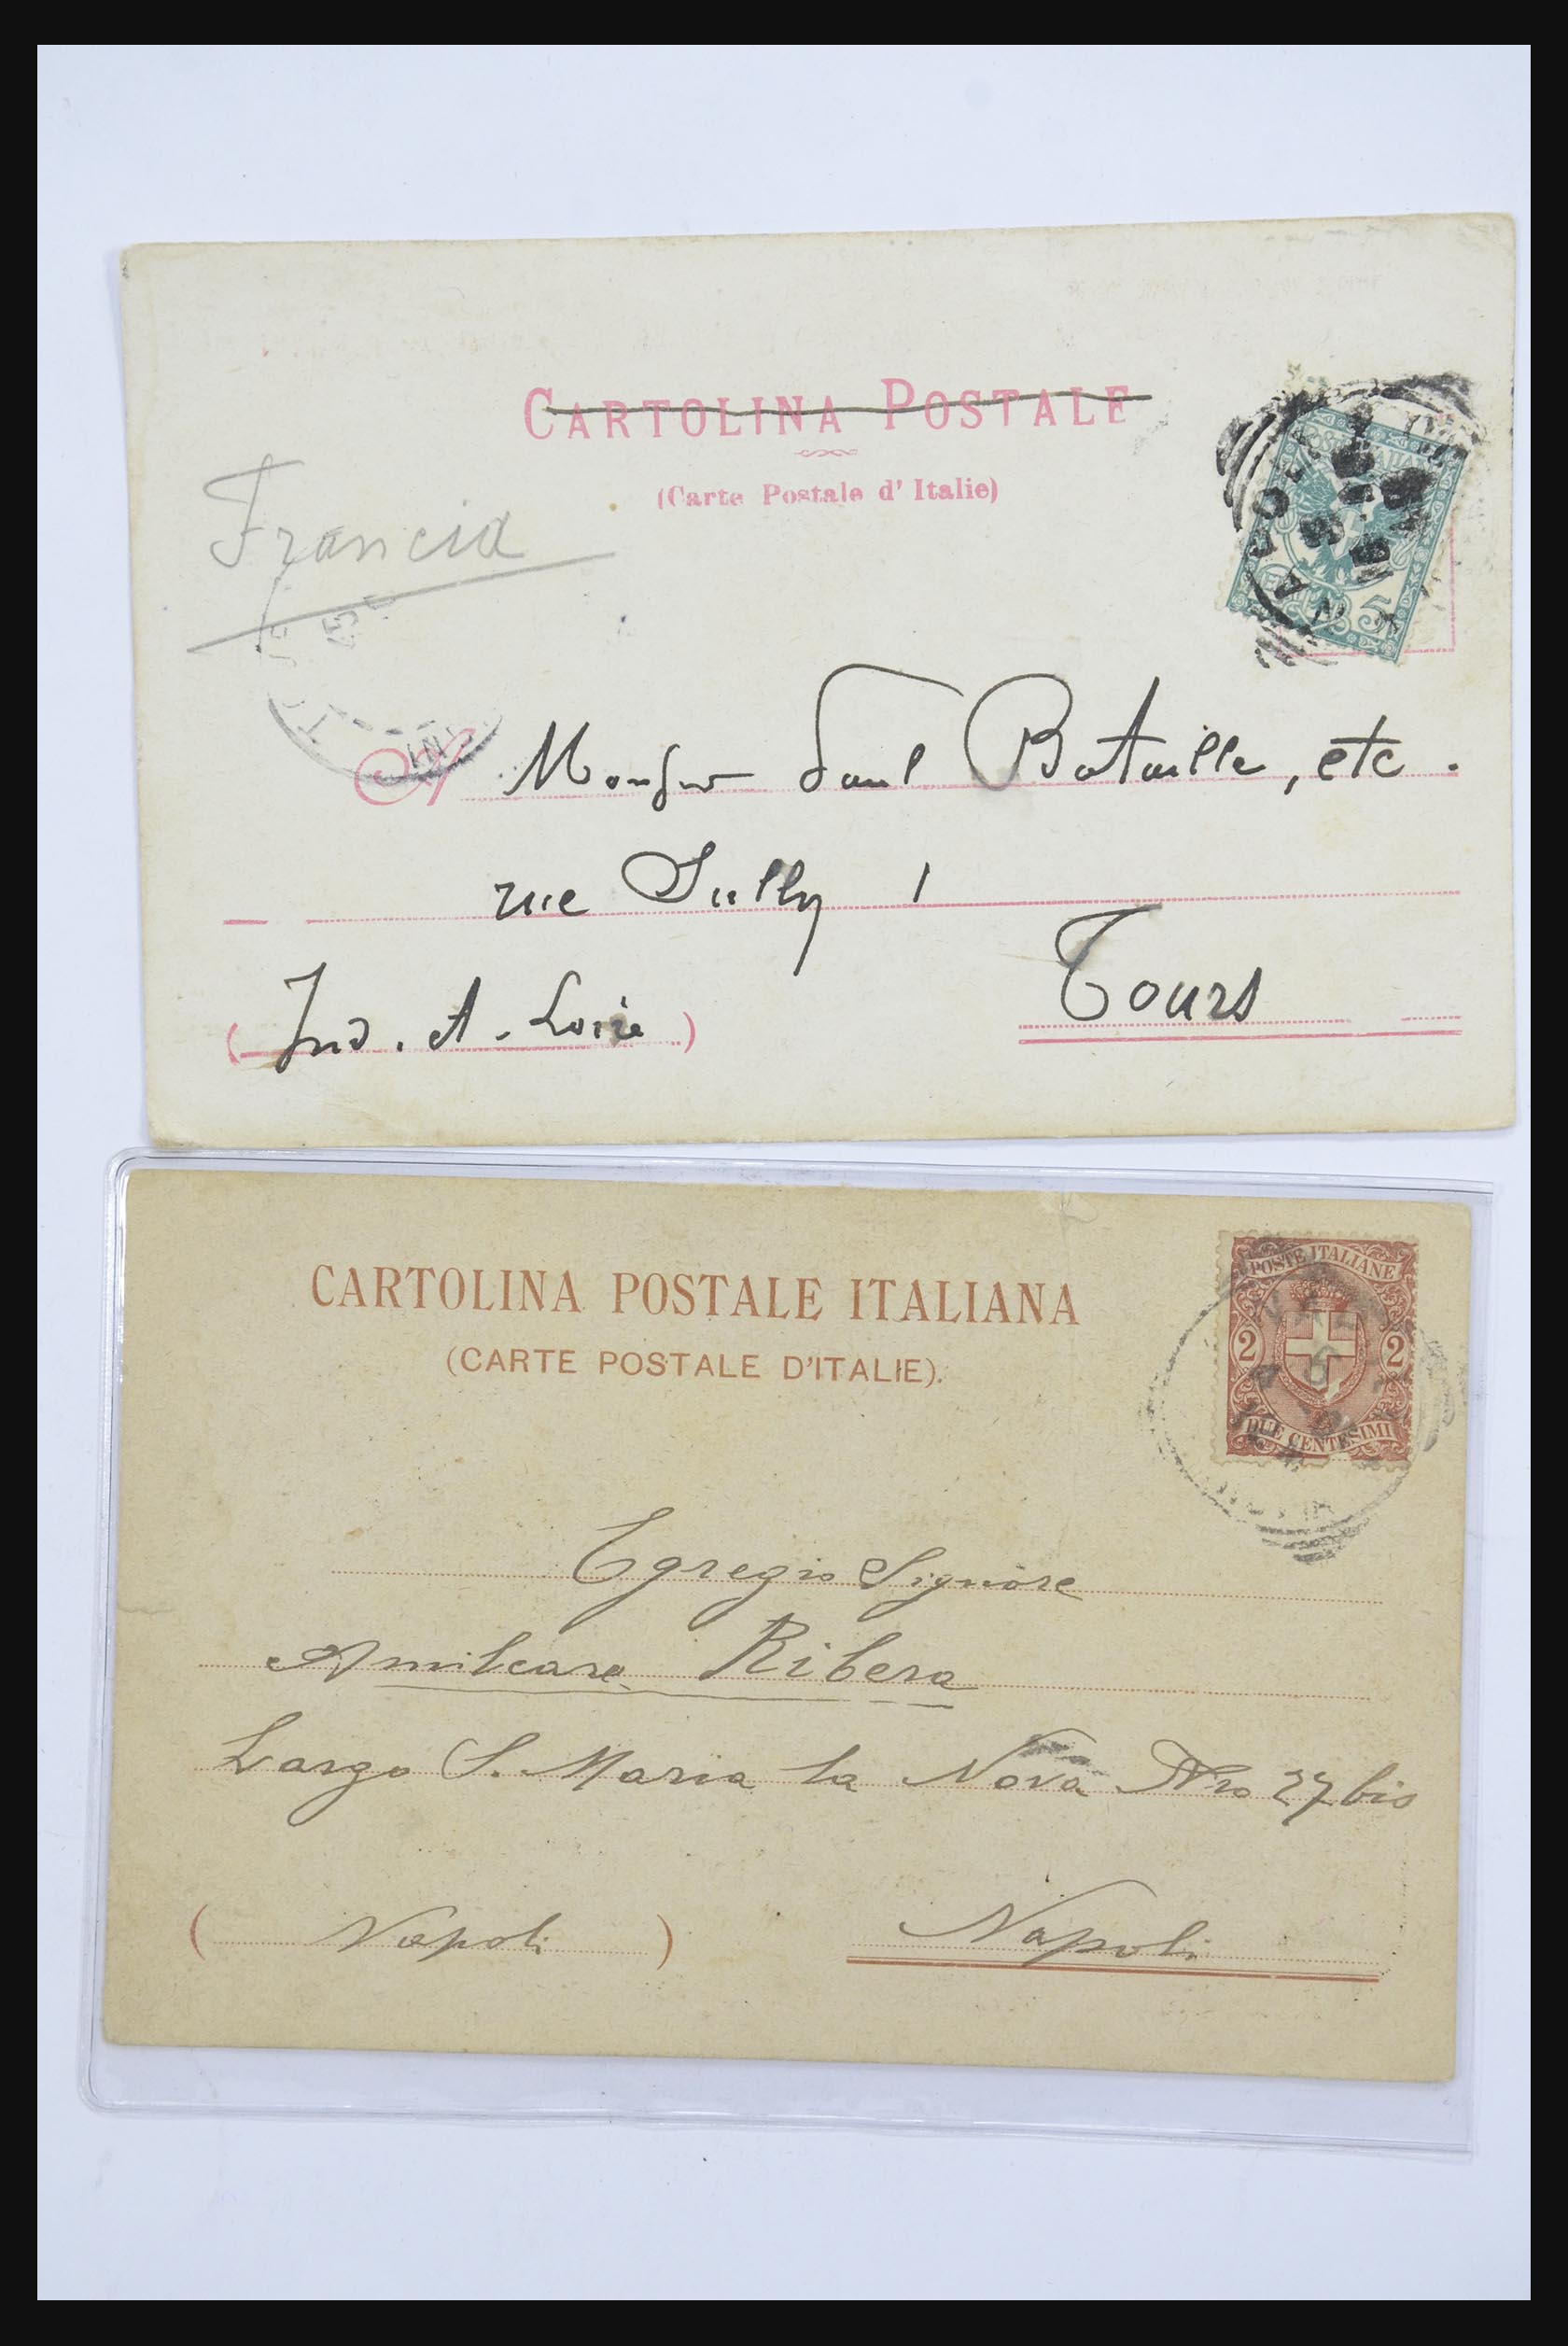 CARTOLINA POSTALE
(Carte Postale d'Italie)
Francia
A Paul Bataille, etc.
rue Sully 1
Tours
(Ind. et-Loire)
5
CARTOLINA POSTALE ITALIANA
(CARTE POSTALE D'ITALIE).
POSTE ITALIANE
2 2
DUE CENTESIMI
Egregio Signore
Amilcare Ribera
Largo S. Maria la Nova Nro 27 bis
(Napoli)
Napoli